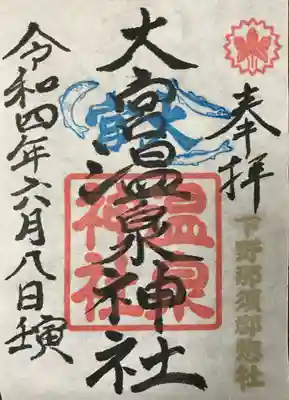 奉拝
下野那須郡惣社
大宮温泉神社
大宮
温泉
神社
令和四年六月八日壬寅